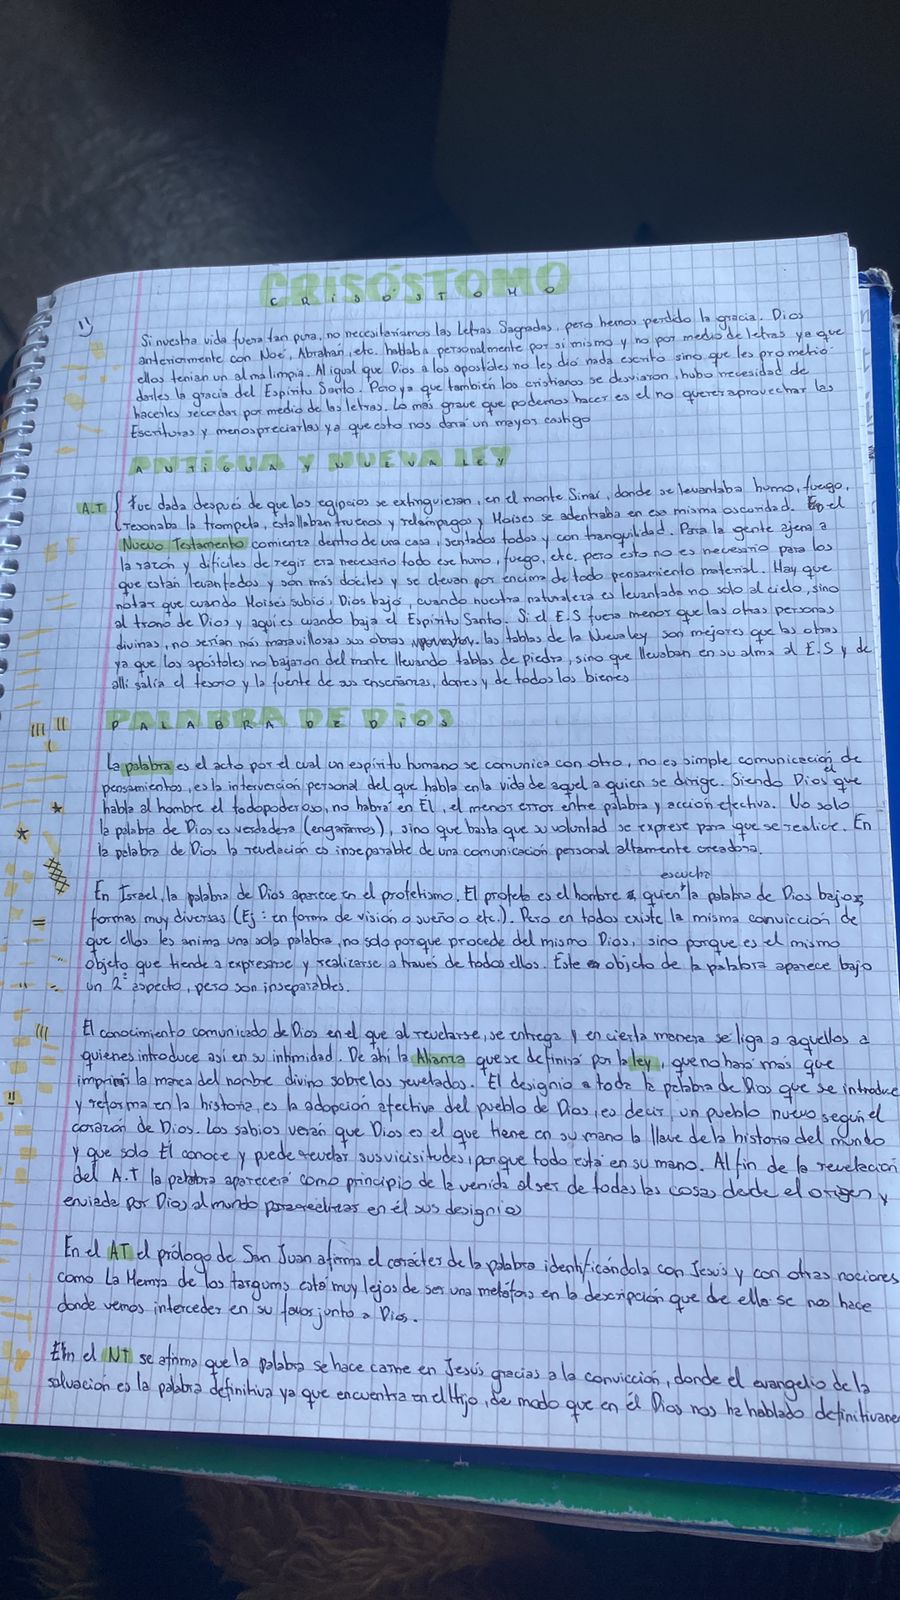 CRISÓSTOMO
Si nuestra vida fuera tan pura, no necesitaríamos las Letras Sagradas, pero hemos perdido la gracia. Dios
anteriormente con Noé, Abrahán, etc. hablaba personalmente por sí mismo y no por medio de letras ya que
ellos tenían un alma limpia. Al igual que Dios a los apostoles no les dió nada escrito sino que les prometió
darles la gracia del Espíritu Santo. Pero ya que también los cristianos se desviaron, hubo necesidad de
hacerles recordar por medio de las letras. Lo más grave que podemos hacer es el no querer aprovechar las
Escrituras y menospreciarlas ya que esto nos dará un mayor castigo
ANTIGUA Y NUEVA LEY
A.T { Fue dada después de que los egipcios se extinguieran, en el monte Sinaí, donde se levantaba humo, fuego,
resonaba la trompeta, estallaban truenos y relámpagos y Moises se adentraba en esa misma oscuridad. En el
Nuevo Testamento comienza dentro de una casa, sentados todos y con tranquilidad. Para la gente ajena a
la razón y difíciles de regir era necesario todo ese humo, fuego, etc, pero esto no es necesario para los
que están levantados y son más dóciles y se elevan por encima de todo pensamiento material. Hay que
notar que cuando Moisés subió, Dios bajó, cuando nuestra naturaleza es levantada no solo al cielo, sino
al trono de Dios y aquí es cuando baja el Espíritu Santo. Si el E.S fuera menor que las otras personas
divinas, no serían más maravillosas sus obras las tablas de la Nueva ley son mejores que las otras
ya que los apóstoles no bajaron del monte llevando tablas de piedra, sino que llevaban en su alma al E.S y de
allí salía el tesoro y la fuente de sus enseñanzas, dones y de todos los bienes
PALABRA DE DIOS
La palabra es el acto por el cual un espíritu humano se comunica con otro, no es simple comunicación de
pensamientos, es la intervención personal del que habla en la vida de aquel a quien se dirige. Siendo Dios el que
habla al hombre el todopoderoso, no habrá en Él, el menor error entre palabra y acción efectiva. No solo
la palabra de Dios es verdadera (engañarnos), sino que basta que su voluntad se exprese para que se realice. En
la palabra de Dios la revelación es inseparable de una comunicación personal altamente creadora.
En Israel, la palabra de Dios aparece en el profetismo. El profeta es el hombre quien escucha la palabra de Dios bajo
formas muy diversas (Ej: en forma de visión o sueño o etc.). Pero en todos existe la misma convicción de
que ellos les anima una sola palabra, no solo porque procede del mismo Dios, sino porque es el mismo
objeto que tiende a expresarse y realizarse a través de todos ellos. Este objeto de la palabra aparece bajo
un 2º aspecto, pero son inseparables.
El conocimiento comunicado de Dios en el que al revelarse, se entrega y en cierta manera se liga a aquellos a
quienes introduce así en su intimidad. De ahí la Alianza que se definirá por la ley, que no hará más que
imprimir la marca del nombre divino sobre los revelados. El designio a toda la palabra de Dios que se introduce
y reforma en la historia, es la adopción efectiva del pueblo de Dios, es decir, un pueblo nuevo según el
corazón de Dios. Los sabios verán que Dios es el que tiene en su mano la llave de la historia del mundo
y que solo Él conoce y puede revelar sus vicisitudes, porque todo está en su mano. Al fin de la revelación
del A.T la palabra aparecerá como principio de la venida al ser de todas las cosas desde el origen y
enviada por Dios al mundo para realizar en él sus designios
En el AT el prólogo de San Juan afirma el carácter de la palabra identificandola con Jesús y con otras nociones
como La Memra de los targums está muy lejos de ser una metáfora en la descripción que de ella se nos hace
donde vemos interceder en su favor junto a Dios.
En el NT se afirma que la palabra se hace carne en Jesús gracias a la convicción, donde el evangelio de la
salvación es la palabra definitiva ya que encuentra en el Hijo, de modo que en él Dios nos ha hablado definitivame